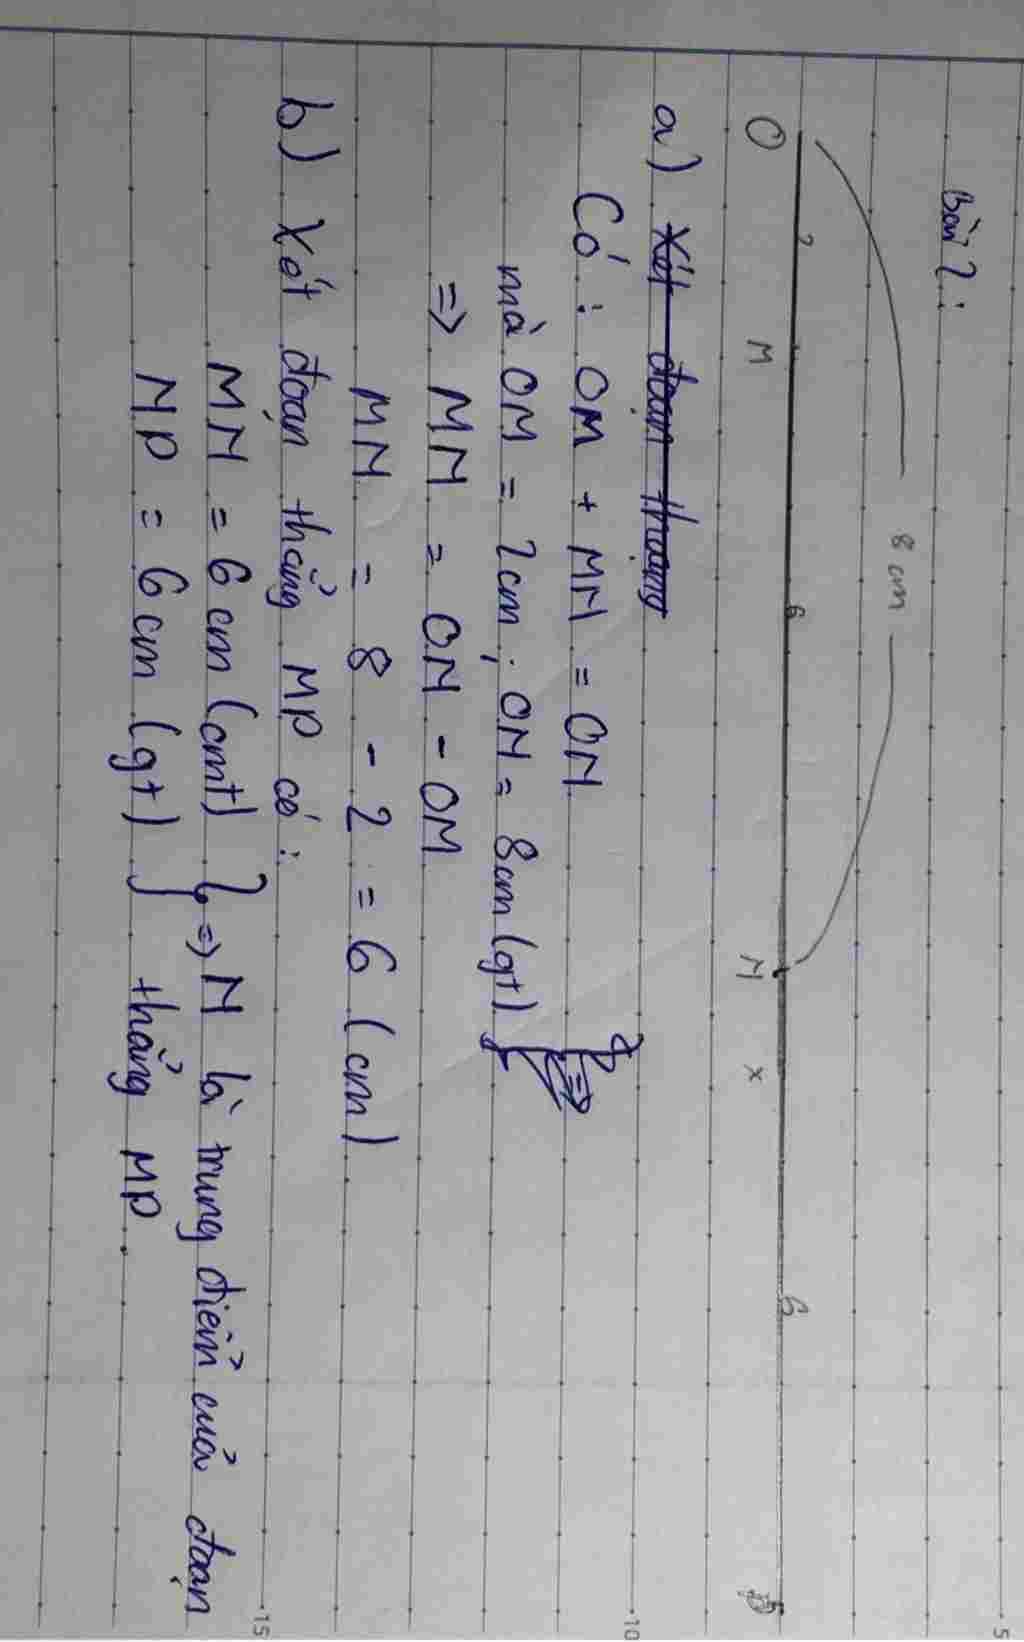 Bài 2:
8 cm
2 6 6
O M N x P
a) Xét đoạn thẳng
Có: OM + MN = ON
mà OM = 2cm, ON = 8cm (gt) } =>
=> MN = ON - OM
MN = 8 - 2 = 6 (cm)
b) Xét đoạn thẳng MP có:
MN = 6 cm (cmt) } => N là trung điểm của đoạn
NP = 6 cm (gt) } thẳng MP
5
10
15